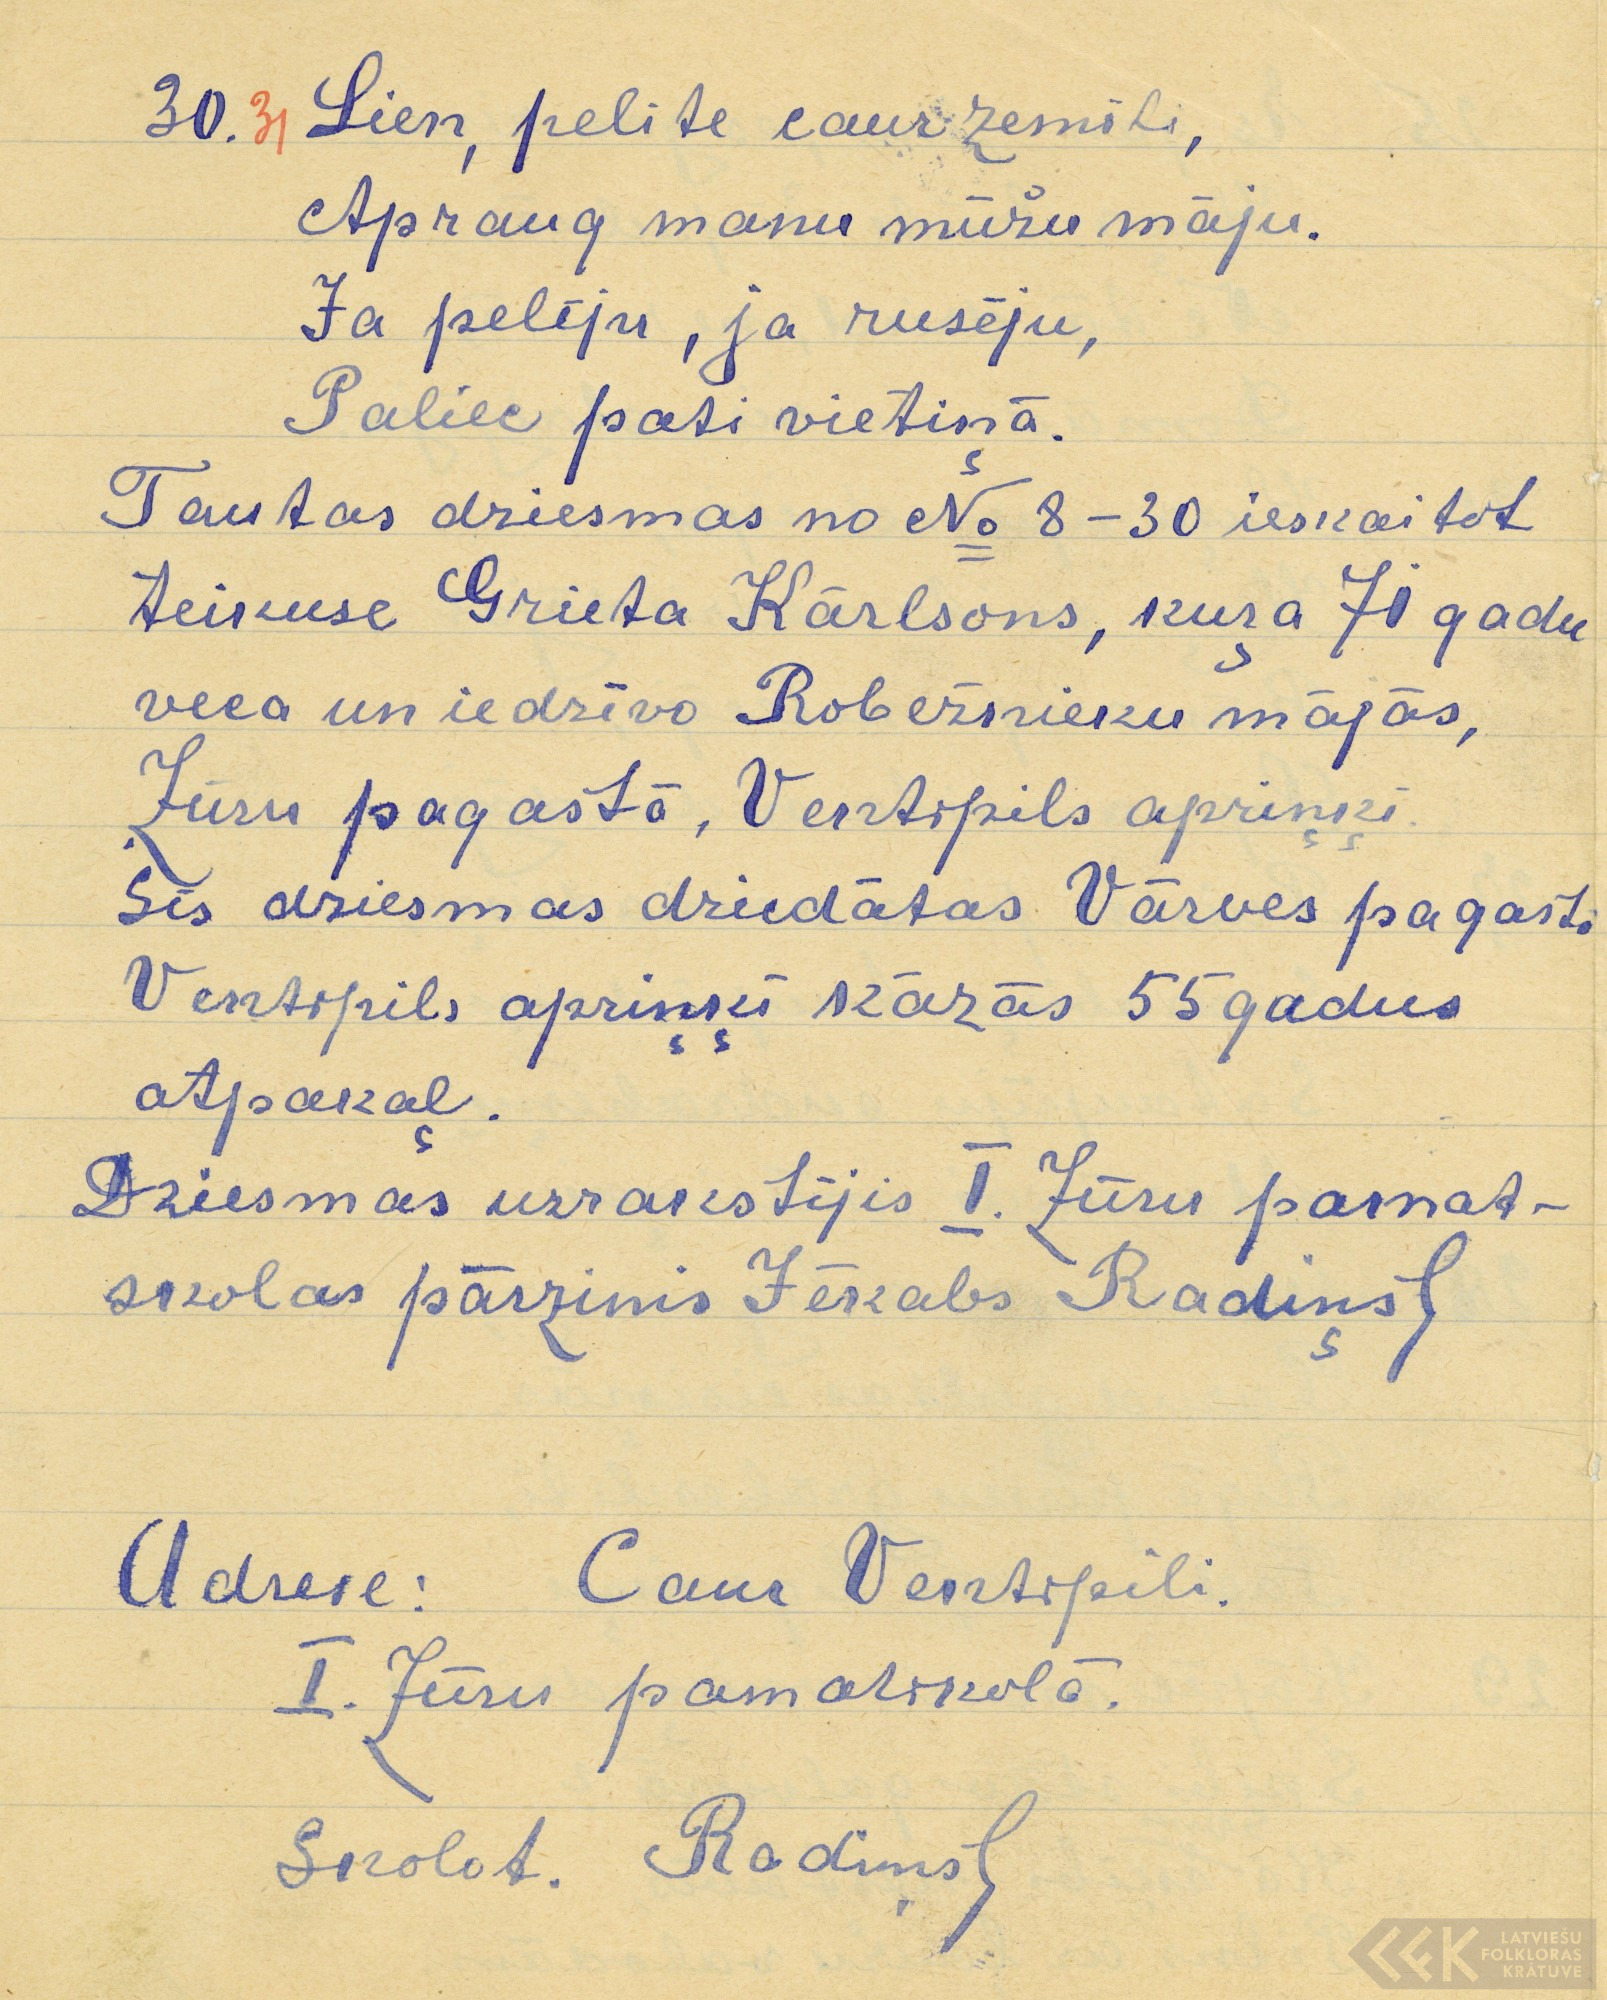 30. 31 Lien, pelite caur zemīti,
Apraug manu mūžu māju.
Ja pelēju, ja rusēju,
Paliec pati vietiņā.
Tautas dziesmas no № 8-30 ieskaitot
teikuse Grieta Kārlsons, kuŗa 71 gadu
veca un iedzīvo Robežnieku mājās,
Zūru pagastā, Ventspils apriņķī.
Šīs dziesmas dziedātas Vārves pagastā
Ventspils apriņķī kāzās 55 gadus
atpakaļ.
Dziesmas uzrakstījis I. Zūru pamat-
skolas pārzinis Jēkabs Radiņš
Adrese: Caur Ventspili.
I. Zūru pamatskolā.
Skolot. Radiņš
LATVIEŠU
FOLKLORAS
KRĀTUVE